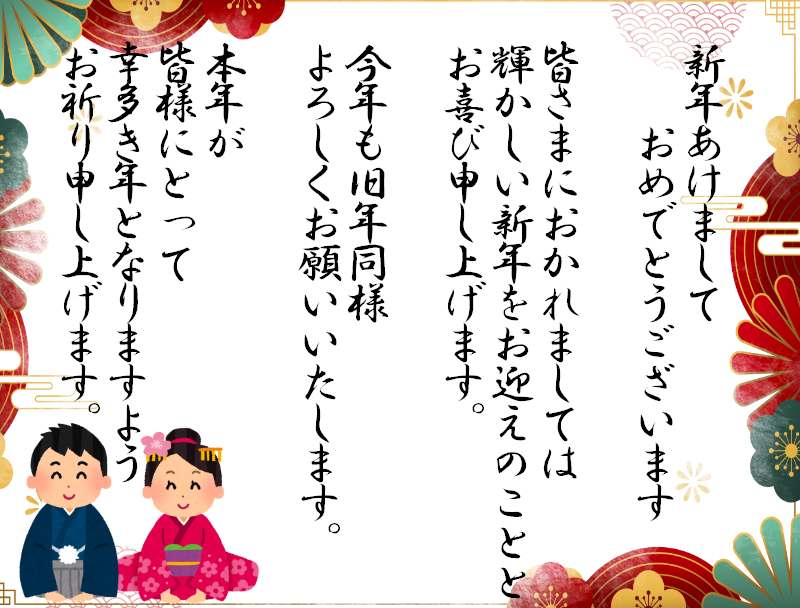 新年あけまして
おめでとうございます
皆さまにおかれましては
輝かしい新年をお迎えのことと
お喜び申し上げます。
今年も旧年同様
よろしくお願いいたします。
本年が
皆様にとって
幸多き年となりますよう
お祈り申し上げます。